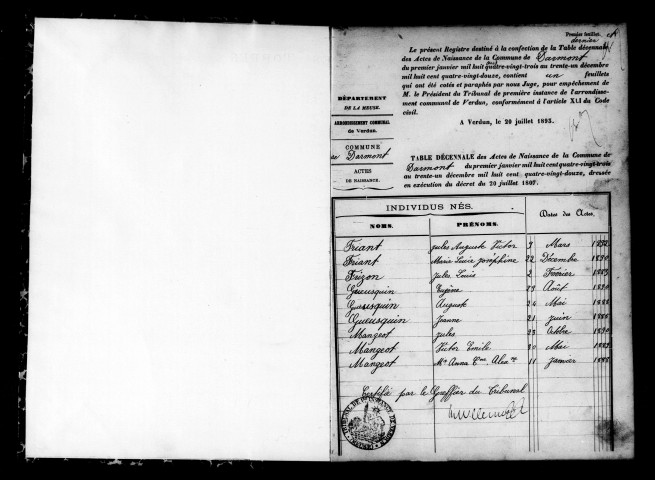 Premier feuillet. et
dernier
Le présent Registre destiné à la confection de la Table décennale
des Actes de Naissance de la Commune de Darmont
du premier janvier mil huit cent quatre-vingt-trois au trente-un décembre
mil huit cent quatre-vingt-douze, contient un feuillets
qui ont été cotés et paraphés par nous Juge, pour empêchement de
M. le Président du Tribunal de première instance de l'arrondisse-
ment communal de Verdun, conformément à l'article XLI du Code
civil.
A Verdun, le 20 juillet 1893.
DÉPARTEMENT
DE LA MEUSE.
ARRONDISSEMENT COMMUNAL
de Verdun.
COMMUNE
de Darmont
ACTES
DE NAISSANCE.
TABLE DÉCENNALE des Actes de Naissance de la Commune de
Darmont du premier janvier mil huit cent quatre-vingt-trois
au trente-un décembre mil huit cent quatre-vingt-douze, dressée
en exécution du décret du 20 juillet 1807.
INDIVIDUS NÉS.
Dates des Actes.
NOMS. PRÉNOMS.
Friant Jules Auguste Victor 3 Mars
Friant Marie Louise Joséphine 22 Décembre 1890
Frizon Jules Louis 2 Février 1883
Gueusquin Eugène Août 1890
Gueusquin Auguste 24 Mai
Gueusquin Jeanne 21 juin
Mangeot Jules Octobre 1890
Mangeot Victor Emile 30 Mai
Mangeot Mie Anna Cne Alex ne 11 janvier 1888
Certifié par le Greffier du Tribunal